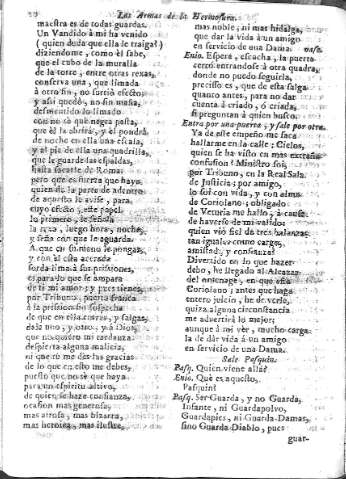 20 Las Armas de la Hermosura.
maestra es de todas guardas.
Un Vandido à mi ha venido
(quien duda que ella le traiga?)
diziendome, como èl sabe,
que el cubo de la muralla
de la torre, entre otras rexas,
conserva una, que limada
à otro fin, no surtiò efecto;
y assi quedò, no sin maña,
desmentido lo limado
con no sè què negra pasta,
que èl la abrirà, y él pondrà
de noche en ella una escala,
y al pie de ella una quadrilla,
que le guarde las espaldas,
hasta sacarle de Roma:
pero que es fuerza que haya
quien de la parte de adentro
de aquesto le avise, y para
cuyo efecto, este papel
lo primero, le señala
la rexa, luego hora, noche,
y seña con que le aguarda.
A que en su intento le pongas,
y con èl esta acerada
sorda lima à sus prisiones,
es para lo que se ampara
de ti mi amor; y pues tienes,
por Tribuno, puerta franca
à la prision sin sospecha
de que en ella entres, y salgas,
dale uno, y otro, y à Dios,
que no quiero mi tardanza
despierte alguna malicia,
ni que tù me dès las gracias
de lo que en esto me debes,
puesto que no sè que haya
para un espiritu altivo,
de quien se hace confianza,
ocasion mas generosa,
mas ayrosa, mas bizarra,
mas heroica, mas ilustre,
mas noble, ni mas hidalga,
que dar la vida à un amigo
en servicio de una Dama. vase.
Enio. Espera, escucha, la puerta
cerrò entrandose à otra quadra,
donde no puedo seguirla,
preciso es, que de esta salga
quanto antes, para no dar
cuenta à criado, ò criada,
si preguntan à quien busco.
Entra por una puerta, y sale por otra.
Ya de este empeño me saca
hallarme en la calle: Cielos,
quien se ha visto en mas estraña
confusion! Ministro soi,
por Tribuno, en la Real Sala
de Justicia; por amigo,
lo soi con vida, y con alma
de Coriolano; obligado
de Veturia me hallo, à causa
de haverse de mi valido:
quien viò fiel de tres balanzas
tan iguales como cargo,
amistad, y confianza!
Divertido en lo que hazer
debo, he llegado al Alcazar
del omenage, en que està
Coriolano; antes que haga
entero juicio, he de verlo,
quiza alguna circunstancia
me advertirà lo mejor,
aunque à mi vèr, mucho carga
la de dàr vida à un amigo
en servicio de una Dama.
Sale Pasquin.
Pasq. Quien viene allà?
Enio. Què es aquesto,
Pasquin?
Pasq. Ser Guarda, y no Guarda,
Infante, ni Guardapolvo,
Guardapies, ni Guarda-Damas,
sino Guarda-Diablo, pues
guar-